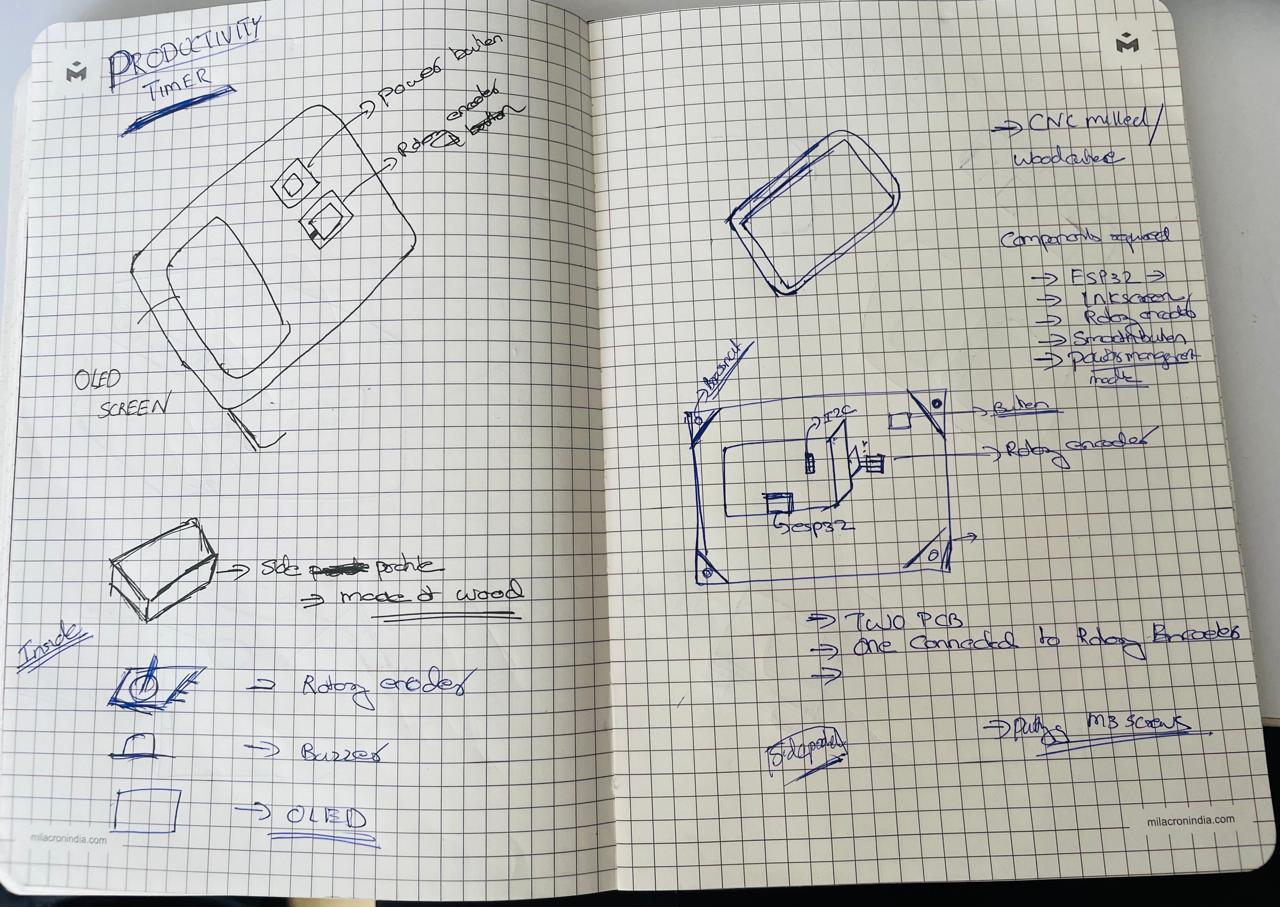 PRODUCTIVITY
TIMER
→ power button
→ Rotary encoder
OLED
SCREEN
→ side profile
→ made of wood
Inside
→ Rotary encoder
→ Buzzer
→ OLED
milacronindia.com
→ CNC milled/
Components required
→ ESP32 →
→ Inkscreen
→ Rotary encoder
→ Smooth button
→ power management
→ Button
→ I2C
→ Rotary encoder
esp32
→ Two PCB
→ One Connected to Rotary Encoder
→
→ M3 Screws
milacronindia.com